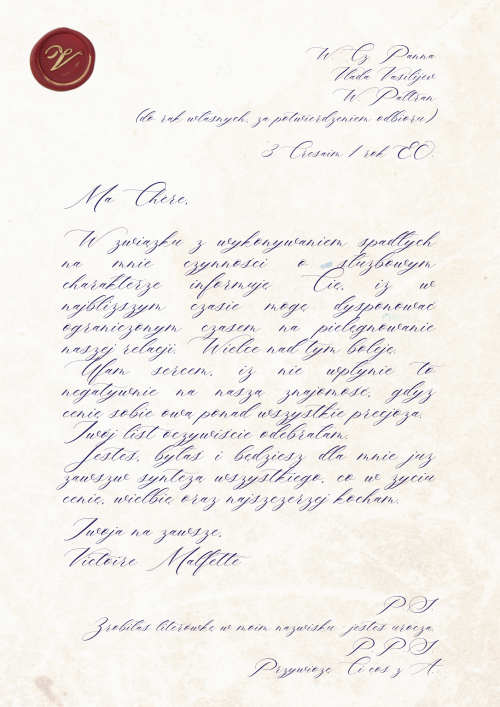 W
W. Cz. Panna
Nada Vasiljev
W. Paltran
(do rąk własnych, za potwierdzeniem odbioru)
3 Cresaim 1 rok EO.
Ma Chere,
W związku z wykonywaniem spadłych
na mnie czynności o służbowym
charakterze informuję Cię, iż w
najbliższym czasie mogę dysponować
ograniczonym czasem na pielęgnowanie
naszej relacji. Wielce nad tym boleję.
Ufam sercem, iż nie wpłynie to
negatywnie na naszą znajomość, gdyż
cenię sobie ową ponad wszystkie precjoza.
Twój list oczywiście odebrałam.
Jesteś, byłaś i będziesz dla mnie już
zawszw syntezą wszystkiego, co w życiu
cenię, wielbię oraz najszczerzej kocham.
Twoja na zawsze,
Victoire Malfette
P.S.
Zrobiłaś literówkę w moim nazwisku - jesteś urocza.
P.P.S.
Przywiozę Ci coś z A.